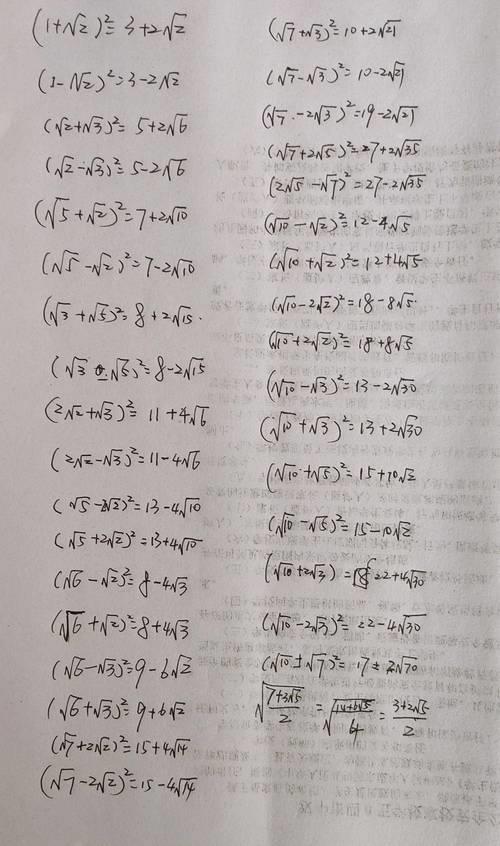 (1+√2)²=3+2√2
(1-√2)²=3-2√2
(√2+√3)²=5+2√6
(√2-√3)²=5-2√6
(√5+√2)²=7+2√10
(√5-√2)²=7-2√10
(√3+√5)²=8+2√15.
(√3-√5)²=8-2√15
(2√2+√3)²=11+4√6
(2√2-√3)²=11-4√6
(√5-2√2)²=13-4√10
(√5+2√2)²=13+4√10
(√6-√2)²=8-4√3
(√6+√2)²=8+4√3
(√6-√3)²=9-6√2
(√6+√3)²=9+6√2
(√7+2√2)²=15+4√14
(√7-2√2)²=15-4√14
(√7+√3)²=10+2√21
(√7-√3)²=10-2√21
(√7-2√3)²=19-2√21
(√7+2√5)²=27+2√35
(2√5-√7)²=27-2√35
(√10-√2)²=12-4√5
(√10+√2)²=12+4√5
(√10-2√2)²=18-8√5
(√10+2√2)²=18+8√5
(√10-√3)²=13-2√30
(√10+√3)²=13+2√30
(√10+√5)²=15+10√2
(√10-√5)²=15-10√2
(√10+2√3)=22+4√30
(√10-2√3)²=22-4√30
(√10±√7)²=17±2√70
√((7+3√5)/2)=√((14+6√5)/4)=(3+2√5)/2